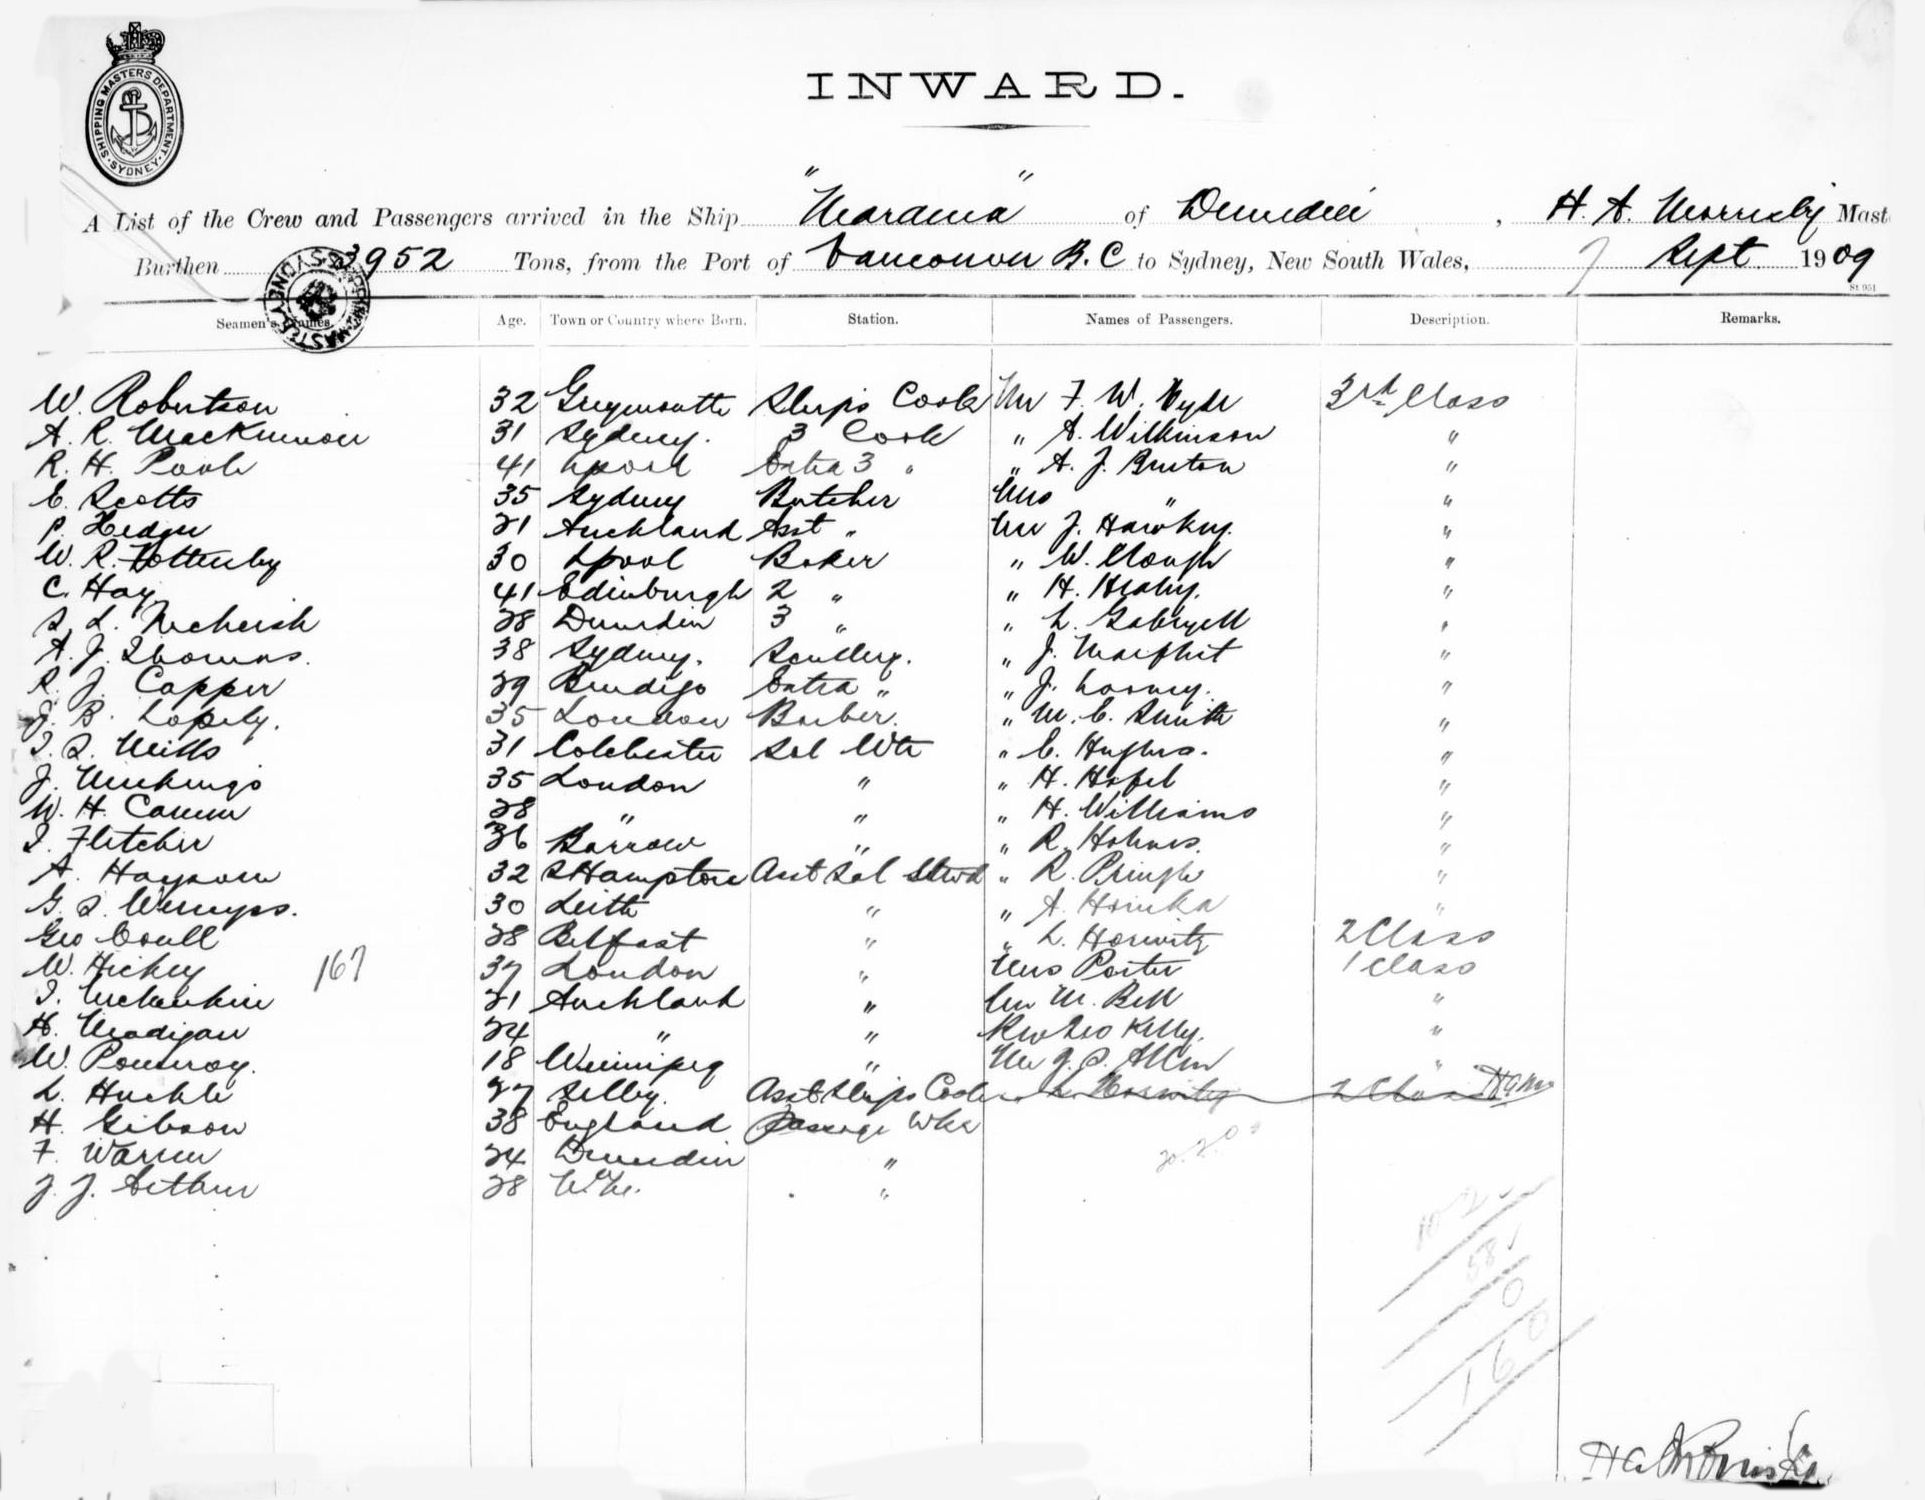 SHIPPING MASTERS DEPARTMENT · SYDNEY ·
INWARD.
A List of the Crew and Passengers arrived in the Ship "Marama" of Dunedin, H. A. Mast
Burthen 3952 Tons, from the Port of Vancouver B.C to Sydney, New South Wales, 7 Sept 1909
St 951
Seamen's Names. Age. Town or Country where Born. Station. Names of Passengers. Description. Remarks.
W. Robertson 32 Greymouth Ships Cook Mr F. W. Hyde 3rd Class
A. R. MacKinnon 31 Sydney. 3 Cook " A. Wilkinson "
R. H. Poole 41 Lpool Extra 3 " " A. J. Burton "
E. Scotts 35 Sydney Butcher Mrs " "
P. Hedge 21 Auckland Asst " Mr J. "
W. R. 30 Lpool Baker " W. Clough "
C. Hay 41 Edinburgh 2 " " H. Healy. "
S. L. 28 Dunedin 3 " " L. "
A. J. Thomas. 38 Sydney. Scullery. " J. "
R. J. Capper 29 Bendigo Extra " " J. Looney. "
J. B. 35 London Barber. " M. C. Smith "
T. S. Mills 31 Colchester Sal Wtr " C. Hughes. "
J. 35 London " " H. "
W. H. Camm 28 " " " H. Williams "
T. Fletcher 36 Barrow " " R. Holmes. "
A. Haysom 32 SHampton Asst Sal Stwd " R. Pringle "
G. S. Wemyss. 30 Leith " " A. "
Geo Coull 28 Belfast " " L. Horwitz 2 Class
W. Hickey 167 37 London " Mrs Porter 1 Class
T. 21 Auckland " Mr M. Bell "
H. Madigan 24 " " Rev Geo Kelly. "
W. Pomeroy. 18 Winnipeg " Mr J. S. Allen "
L. Huckle 27 Selby. Asst Ships Cook " L. Horwitz 2 Class
H. Gibson 38 England Passage Wkr
F. Warren 24 Dunedin "
J. J. Arthur 28 "
102
58
0
0
160